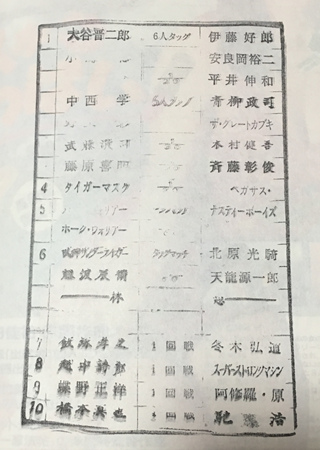 1 大谷晋二郎 6人タッグ 伊藤好郎
安良岡裕二
平井伸和
中西学 6人タッグ 青柳政司
ザ・グレートカブキ
木村健吾
藤原喜明 斉藤彰俊
4 タイガーマスク ペガサス・
5 ナスティーボーイズ
ホーク・ウォリアー
6 獣神サンダーライガー タッグマッチ 北原光騎
藤波辰爾 天龍源一郎
休 憩
7 飯塚孝之 1回戦 冬木弘道
8 越中詩郎 1回戦 スーパーストロングマシン
9 蝶野正洋 1回戦 阿修羅・原
10 橋本真也 1回戦 馳 浩